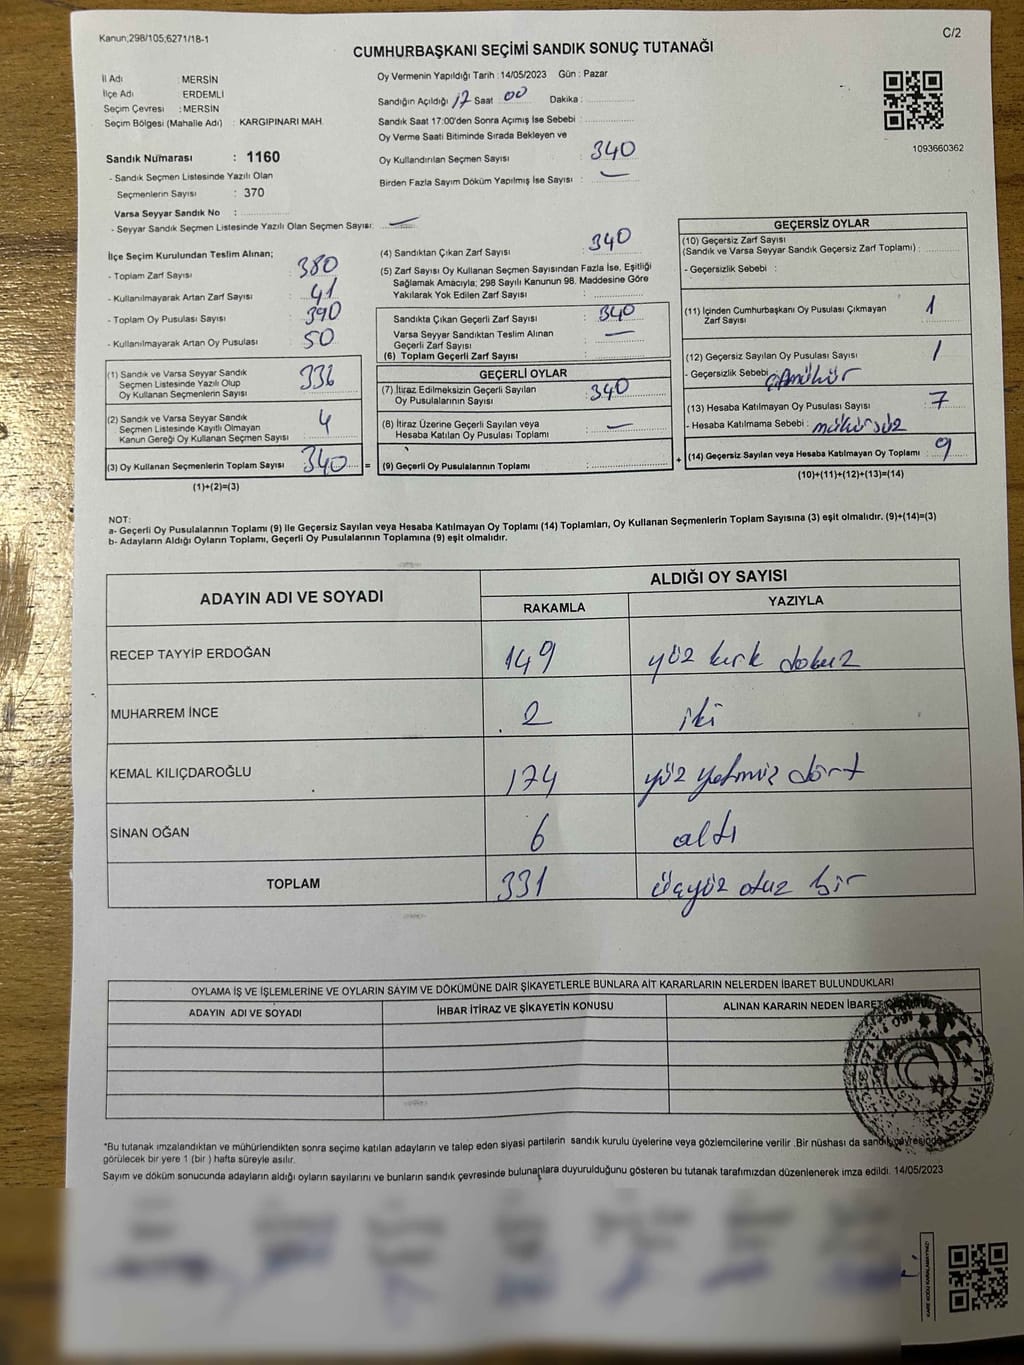 Kanun,298/105,6271/18-1
C/2
CUMHURBAŞKANI SEÇİMİ SANDIK SONUÇ TUTANAĞI
İl Adı : MERSİN
İlçe Adı : ERDEMLİ
Seçim Çevresi : MERSİN
Seçim Bölgesi (Mahalle Adı) : KARGIPINARI MAH.
Sandık Numarası : 1160
- Sandık Seçmen Listesinde Yazılı Olan
Seçmenlerin Sayısı : 370
Varsa Seyyar Sandık No :
- Seyyar Sandık Seçmen Listesinde Yazılı Olan Seçmen Sayısı: —
Oy Vermenin Yapıldığı Tarih : 14/05/2023 Gün : Pazar
Sandığın Açıldığı 17 Saat 00 Dakika :
Sandık Saat 17:00'den Sonra Açımış İse Sebebi :
Oy Verme Saati Bitiminde Sırada Bekleyen ve
Oy Kullandırılan Seçmen Sayısı : 340
Birden Fazla Sayım Döküm Yapılmış İse Sayısı : —
1093660362
İlçe Seçim Kurulundan Teslim Alınan;
- Toplam Zarf Sayısı : 380
- Kullanılmayarak Artan Zarf Sayısı : 41
- Toplam Oy Pusulası Sayısı : 390
- Kullanılmayarak Artan Oy Pusulası : 50
(1) Sandık ve Varsa Seyyar Sandık
Seçmen Listesinde Yazılı Olup
Oy Kullanan Seçmenlerin Sayısı : 336
(2) Sandık ve Varsa Seyyar Sandık
Seçmen Listesinde Kayıtlı Olmayan
Kanun Gereği Oy Kullanan Seçmen Sayısı : 4
(3) Oy Kullanan Seçmenlerin Toplam Sayısı : 340 =
(1)+(2)=(3)
(4) Sandıktan Çıkan Zarf Sayısı : 340
(5) Zarf Sayısı Oy Kullanan Seçmen Sayısından Fazla İse, Eşitliği
Sağlamak Amacıyla; 298 Sayılı Kanunun 98. Maddesine Göre
Yakılarak Yok Edilen Zarf Sayısı :
Sandıkta Çıkan Geçerli Zarf Sayısı : 340
Varsa Seyyar Sandıktan Teslim Alınan
Geçerli Zarf Sayısı : —
(6) Toplam Geçerli Zarf Sayısı :
GEÇERLİ OYLAR
(7) İtiraz Edilmeksizin Geçerli Sayılan
Oy Pusulalarının Sayısı : 340
(8) İtiraz Üzerine Geçerli Sayılan veya
Hesaba Katılan Oy Pusulası Toplamı : —
(9) Geçerli Oy Pusulalarının Toplamı : +
GEÇERSİZ OYLAR
(10) Geçersiz Zarf Sayısı
(Sandık ve Varsa Seyyar Sandık Geçersiz Zarf Toplamı) :
- Geçersizlik Sebebi :
(11) İçinden Cumhurbaşkanı Oy Pusulası Çıkmayan
Zarf Sayısı : 1
(12) Geçersiz Sayılan Oy Pusulası Sayısı : 1
- Geçersizlik Sebebi
(13) Hesaba Katılmayan Oy Pusulası Sayısı : 7
- Hesaba Katılmama Sebebi : mühürsüz
(14) Geçersiz Sayılan veya Hesaba Katılmayan Oy Toplamı : 9
(10)+(11)+(12)+(13)=(14)
NOT:
a- Geçerli Oy Pusulalarının Toplamı (9) İle Geçersiz Sayılan veya Hesaba Katılmayan Oy Toplamı (14) Toplamları, Oy Kullanan Seçmenlerin Toplam Sayısına (3) eşit olmalıdır. (9)+(14)=(3)
b- Adayların Aldığı Oyların Toplamı, Geçerli Oy Pusulalarının Toplamına (9) eşit olmalıdır.
ADAYIN ADI VE SOYADI
ALDIĞI OY SAYISI
RAKAMLA YAZIYLA
RECEP TAYYİP ERDOĞAN 149 yüz kırk dokuz
MUHARREM İNCE 2 iki
KEMAL KILIÇDAROĞLU 174 yüz yetmiş dört
SİNAN OĞAN 6 altı
TOPLAM 331 üçyüz otuz bir
OYLAMA İŞ VE İŞLEMLERİNE VE OYLARIN SAYIM VE DÖKÜMÜNE DAİR ŞİKAYETLERLE BUNLARA AİT KARARLARIN NELERDEN İBARET BULUNDUKLARI
ADAYIN ADI VE SOYADI İHBAR İTİRAZ VE ŞİKAYETİN KONUSU ALINAN KARARIN NEDEN İBARET
*Bu tutanak imzalandıktan ve mühürlendikten sonra seçime katılan adayların ve talep eden siyasi partilerin sandık kurulu üyelerine veya gözlemcilerine verilir .Bir nüshası da sandık çevresinde
görülecek bir yere 1 (bir ) hafta süreyle asılır.
Sayım ve döküm sonucunda adayların aldığı oyların sayılarını ve bunların sandık çevresinde bulunanlara duyurulduğunu gösteren bu tutanak tarafımızdan düzenlenerek imza edildi. 14/05/2023
KARE KODU KARALAMAYINIZ!